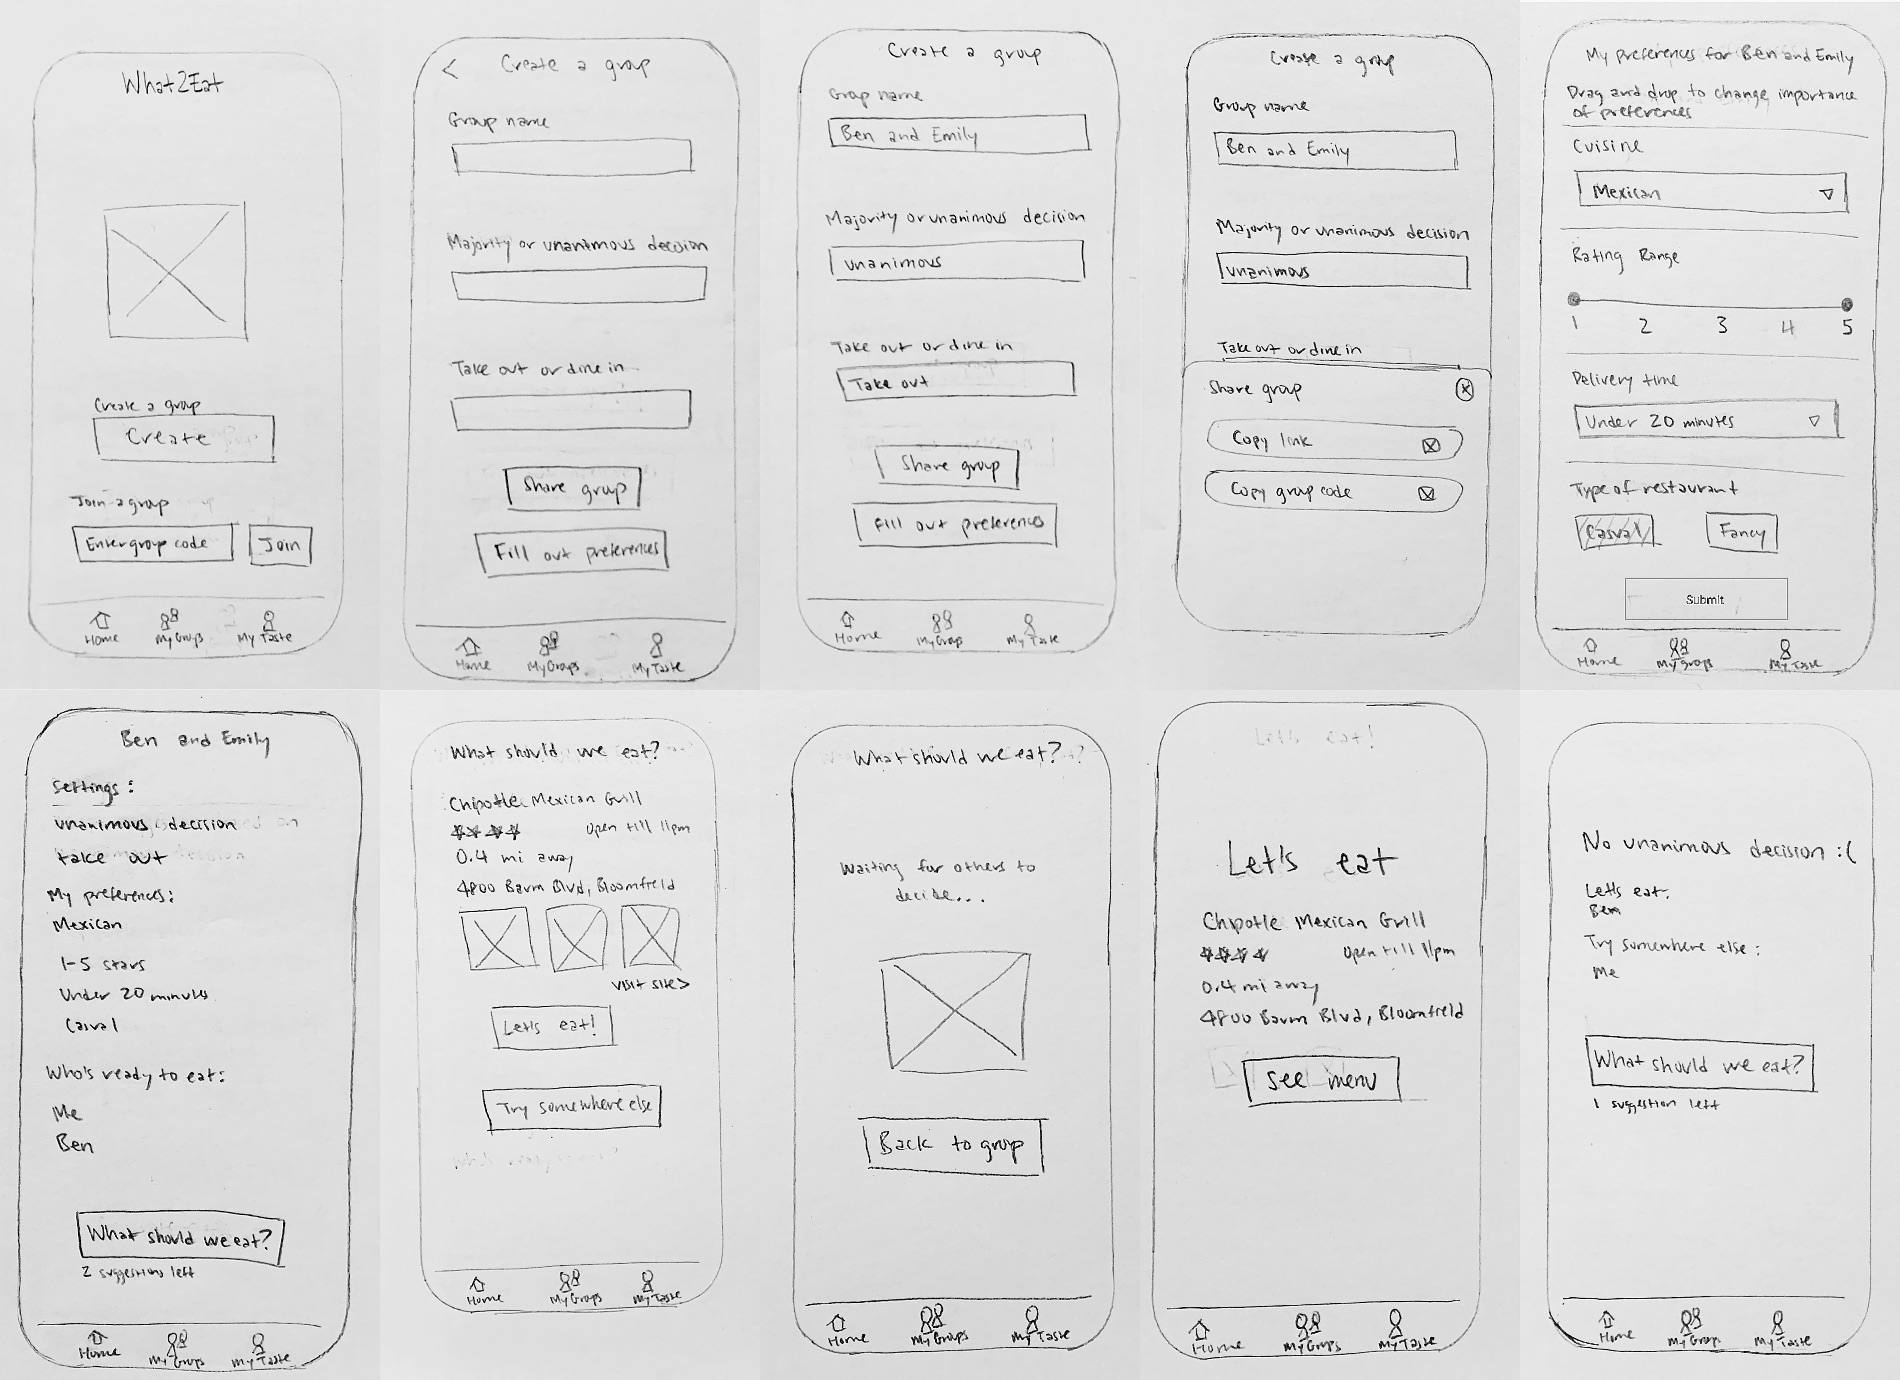 What2Eat
Create a group
Create
Join a group
Enter group code
Join
Home
My Groups
My Taste
<
Create a group
Group name
Majority or unanimous decision
Take out or dine in
Share group
Fill out preferences
Home
My Groups
My Taste
Create a group
Group name
Ben and Emily
Majority or unanimous decision
unanimous
Take out or dine in
Take out
Share group
Fill out preferences
Home
My Group
My Taste
Create a group
Group name
Ben and Emily
Majority or unanimous decision
unanimous
Take out or dine in
Share group
Copy link
Copy group code
My preferences for Ben and Emily
Drag and drop to change importance
of preferences
Cuisine
Mexican
Rating Range
1 2 3 4 5
Delivery time
Under 20 minutes
Type of restaurant
Casual
Fancy
Submit
Home
My groups
My Taste
Ben and Emily
Settings:
unanimous decision
take out
My preferences:
Mexican
1-5 stars
Under 20 minutes
Casual
Who's ready to eat:
Me
Ben
What should we eat?
2 suggestions left
Home
My Groups
My Taste
What should we eat?
Chipotle Mexican Grill
Open till 11pm
0.4 mi away
4800 Baum Blvd, Bloomfield
visit site>
Let's eat!
Try somewhere else
Home
My Groups
My Taste
What should we eat?
Waiting for others to
decide...
Back to group
Home
My Groups
My Taste
Let's eat!
Let's eat
Chipotle Mexican Grill
Open till 11pm
0.4 mi away
4800 Baum Blvd, Bloomfield
see menu
Home
My Groups
My Taste
No unanimous decision :(
Let's eat:
Ben
Try somewhere else:
Me
What should we eat?
1 suggestion left
Home
My Groups
My Taste